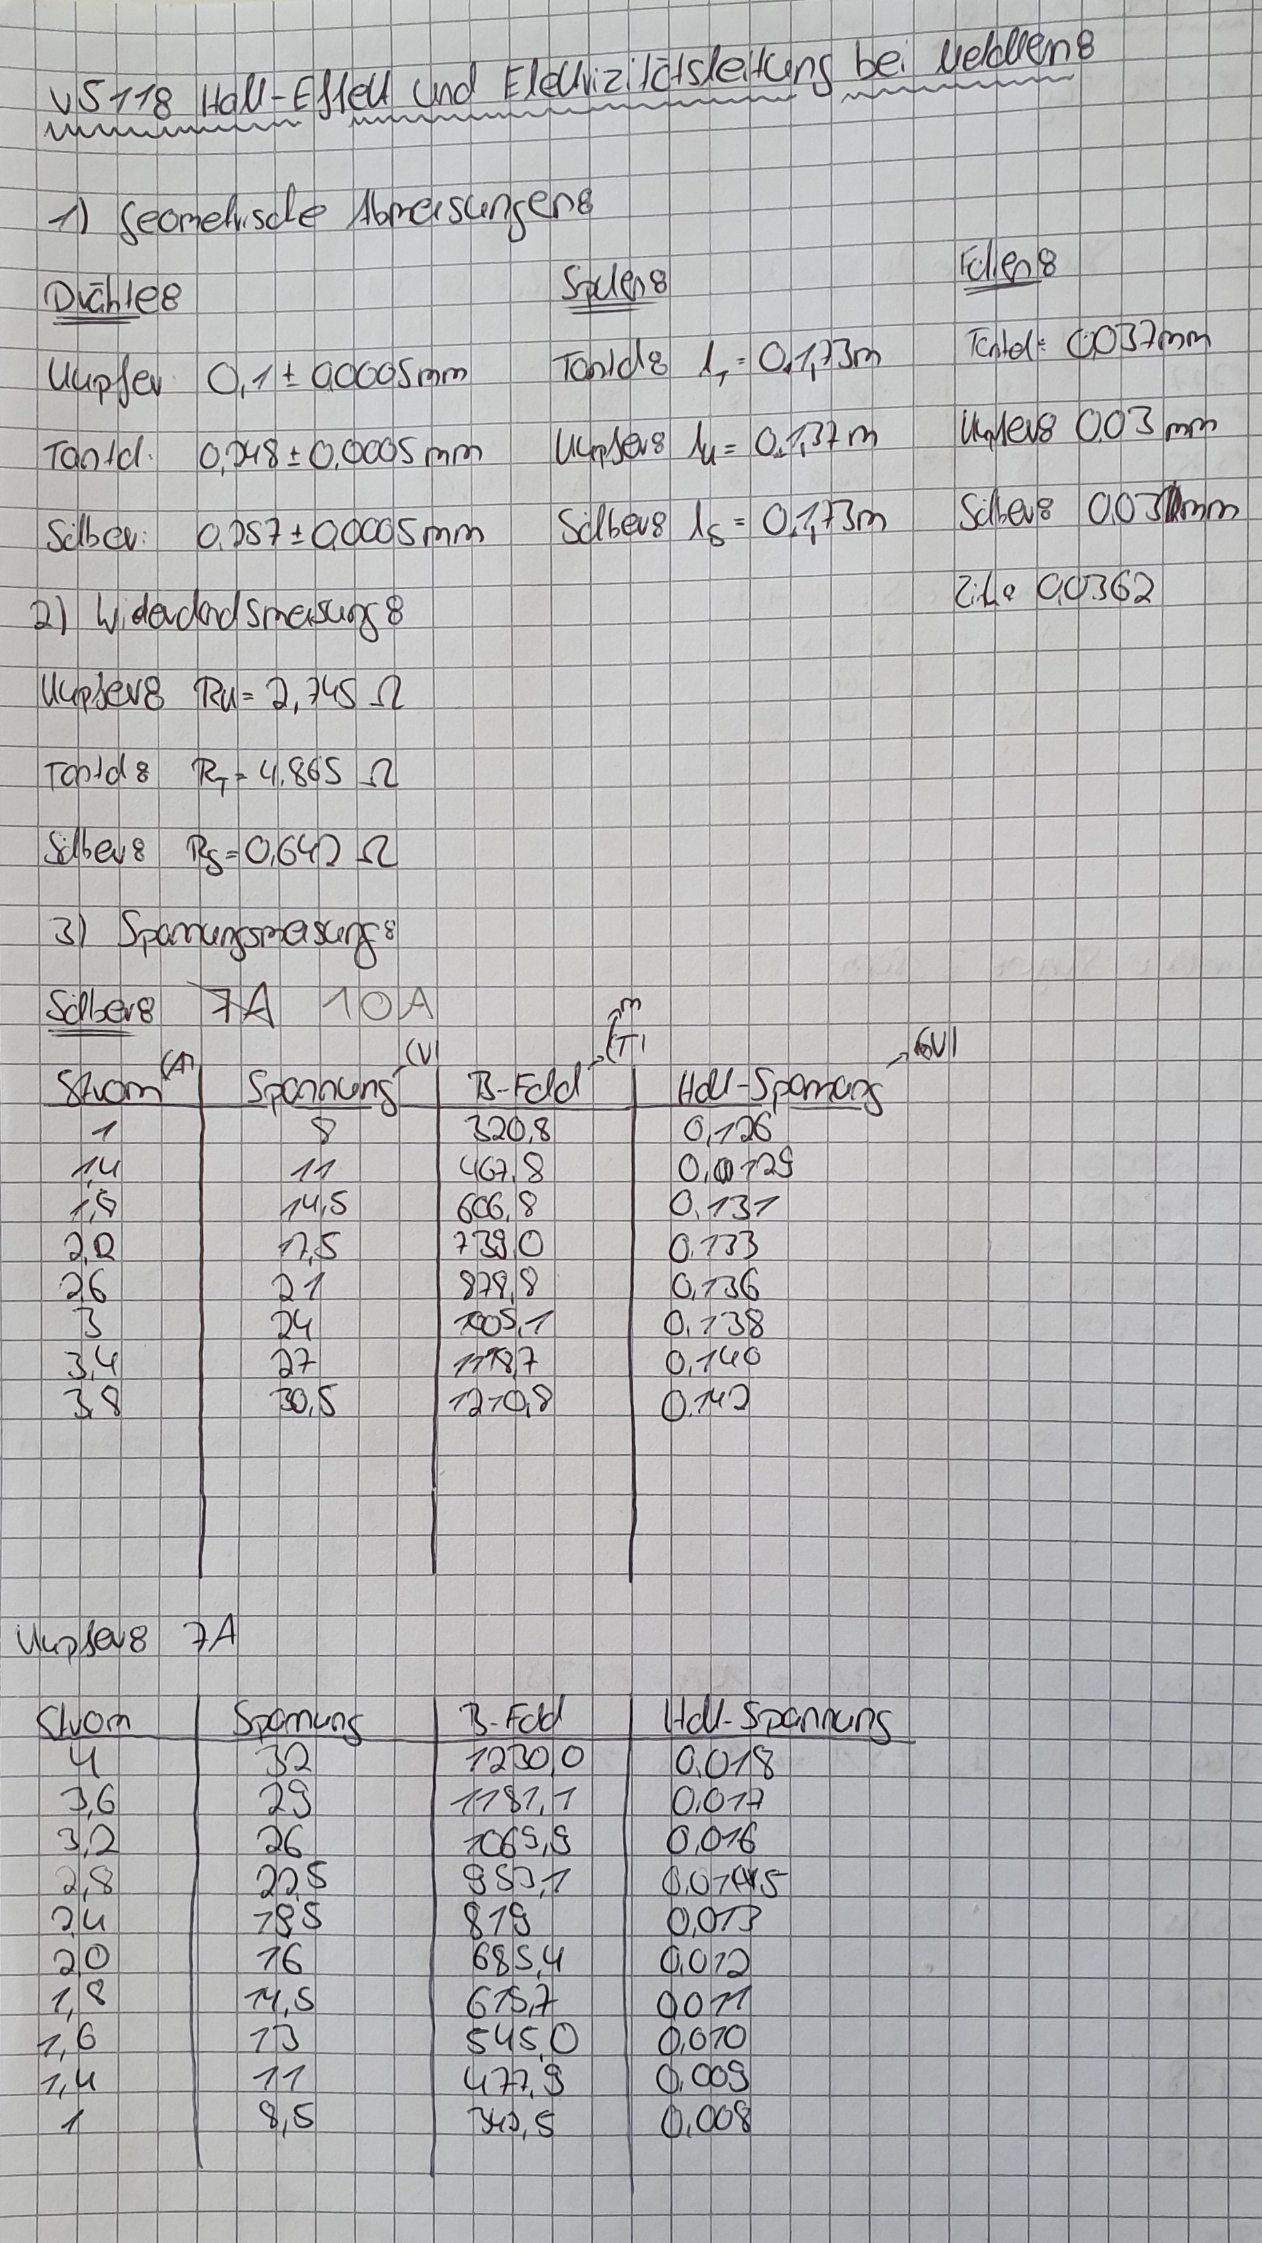 VS118 Hall-Effekt und Elektrizitätsleitung bei Metallen:
1) Geometrische Abmessungen:
Drähte: Spulen: Folien:
Kupfer: 0,1 ± 0,0005mm Tantal: l_T = 0,173m Tantal: 0,037mm
Tantal: 0,248 ± 0,0005mm Kupfer: l_K = 0,137m Kupfer: 0,03mm
Silber: 0,257 ± 0,0005mm Silber: l_S = 0,173m Silber: 0,03mm
Zink: 0,0362
2) Widerstandsmessung:
Kupfer: R_K = 2,745 Ω
Tantal: R_T = 4,865 Ω
Silber: R_S = 0,642 Ω
3) Spannungsmessung:
Silber: 7A 10A
Strom (A) Spannung (V) B-Feld (mT) Hall-Spannung
1 8 320,8 0,126
1,4 11 467,8 0,0129
1,8 14,5 606,8 0,131
2,2 17,5 739,0 0,133
2,6 21 879,8 0,136
3 24 1005,1 0,138
3,4 27 1118,7 0,140
3,8 30,5 1210,8 0,142
Kupfer: 7A
Strom Spannung B-Feld Hall-Spannung
4 32 1230,0 0,018
3,6 29 1181,1 0,017
3,2 26 1069,9 0,016
2,8 22,5 953,1
2,4 19,5 819 0,013
2,0 16 685,4 0,012
1,8 14,5 615,7 0,011
1,6 13 545,0 0,010
1,4 11 477,9 0,009
1 8,5 342,5 0,008